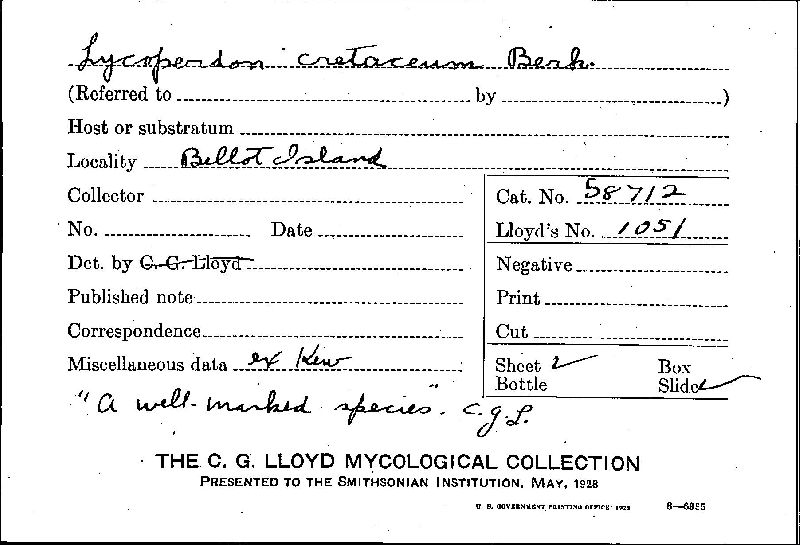 Lycoperdon cretaceum Berk.
(Referred to by )
Host or substratum
Locality Bellot Island
Collector
Cat. No. 58712
No. Date
Lloyd's No. 1051
Det. by C. G. Lloyd
Negative
Published note
Print
Correspondence
Cut
Miscellaneous data ex Kew
Sheet ✓ Box
Bottle Slide ✓
"A well-marked species". C.G.L.
THE C. G. LLOYD MYCOLOGICAL COLLECTION
PRESENTED TO THE SMITHSONIAN INSTITUTION, MAY, 1928
U. S. GOVERNMENT PRINTING OFFICE: 1928 8—6935